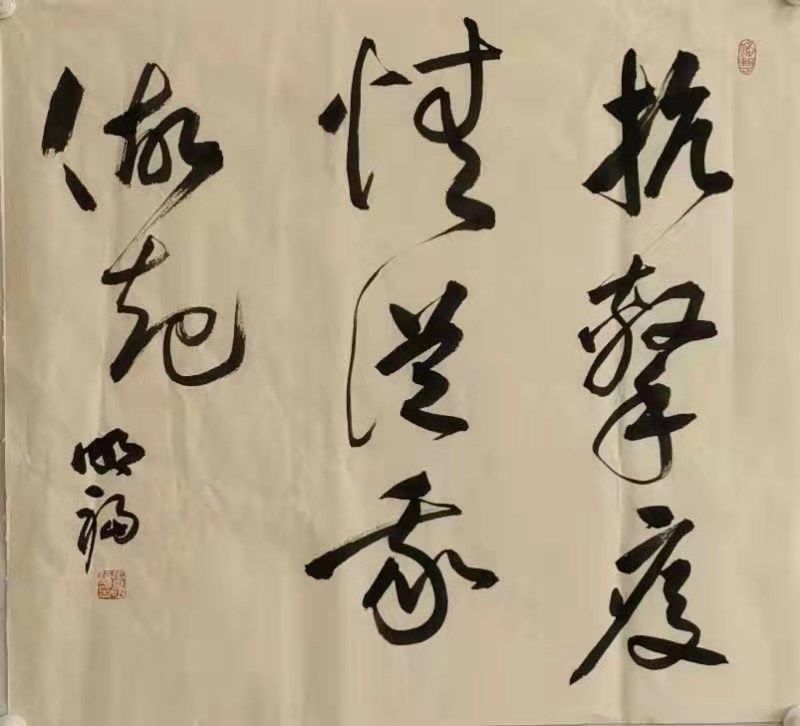 抗擊疫
情從我
做起
明福